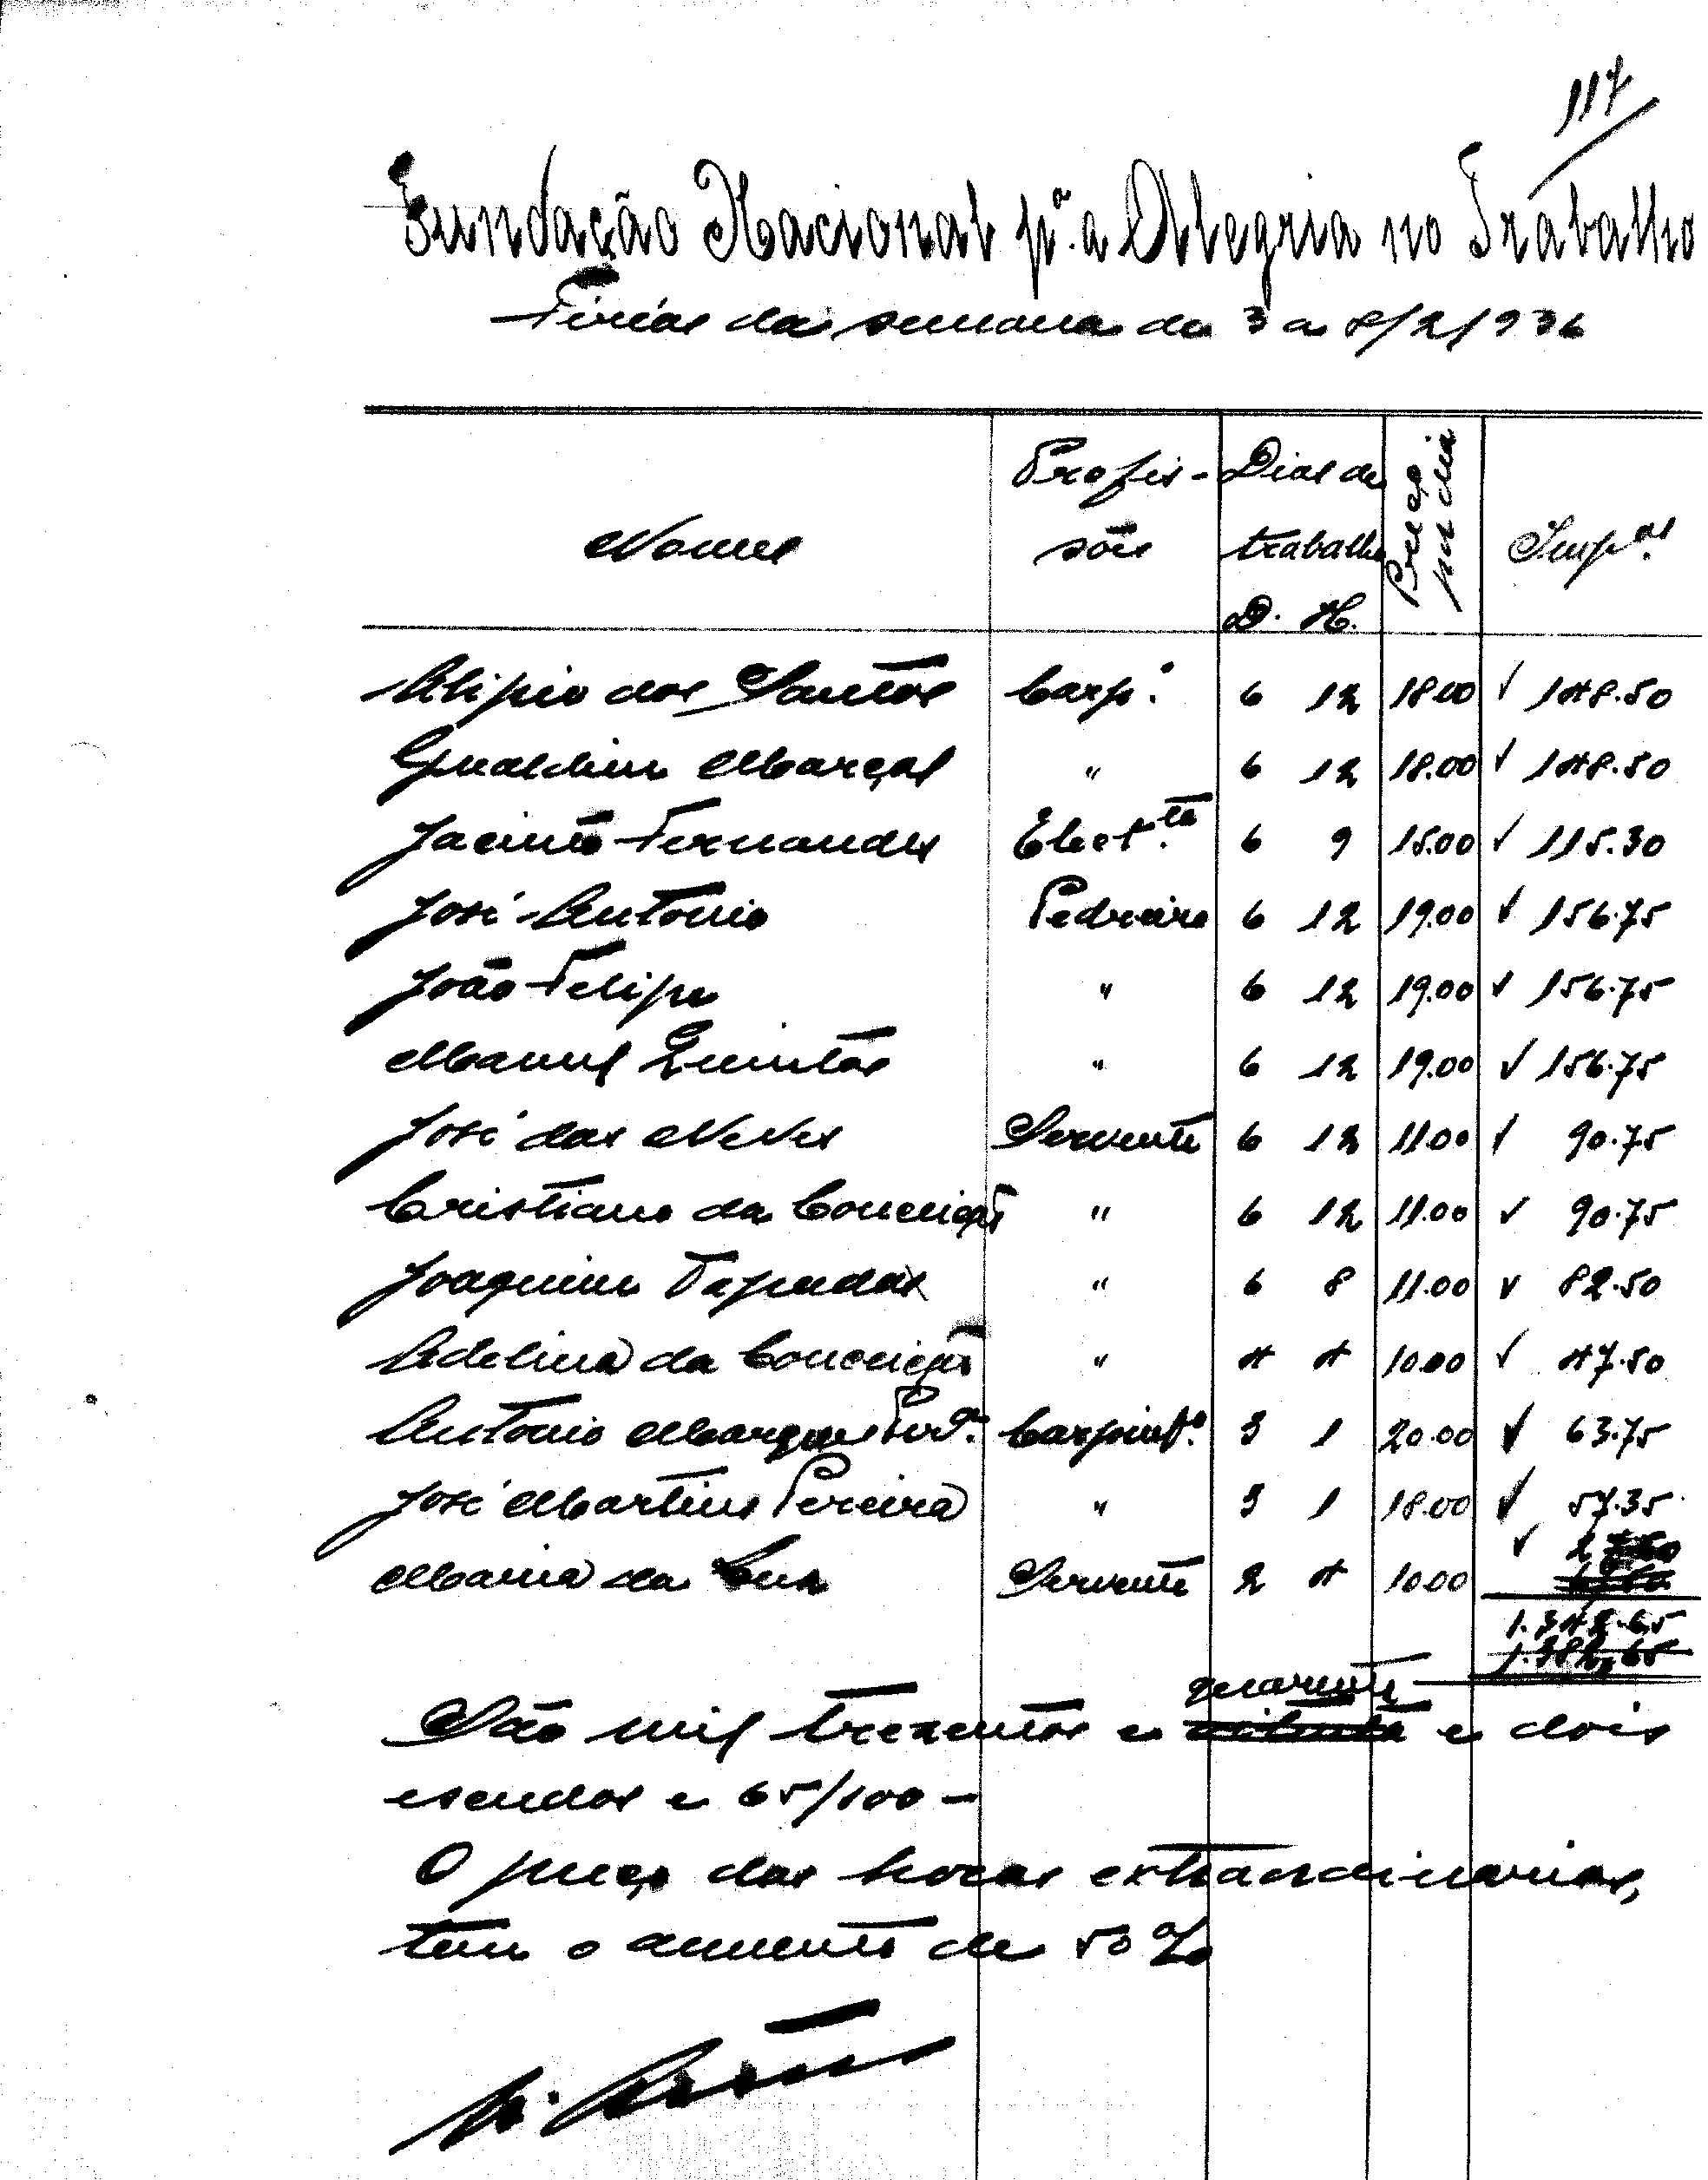 117
Fundação Nacional pª. a Alegria no Trabalho
Férias da semana de 3 a 8/2/936
Nomes Profis- sões Dias de trabalho D. H. Preço por dia Impªs.
Alipio dos Santos Carp.º 6 12 18.00 ✓ 148.50
Gualdim Marçal " 6 12 18.00 ✓ 148.50
Jacinto Fernandes Elect.ta 6 9 15.00 ✓ 115.30
José Antonio Pedreiro 6 12 19.00 ✓ 156.75
João Felipe " 6 12 19.00 ✓ 156.75
Manuel Quintas " 6 12 19.00 ✓ 156.75
José das Neves Servente 6 12 11.00 ✓ 90.75
Cristiano da Conceição " 6 12 11.00 ✓ 90.75
Joaquim " 6 8 11.00 ✓ 82.50
Adelina da Conceição " 4 4 10.00 ✓ 47.50
Antonio Marques Carpintº. 3 1 20.00 ✓ 63.75
José Martins Pereira " 3 1 18.00 ✓ 57.35
Maria da Servente 2 4 10.00 ✓
1.342.65
1.382,65
quarenta
São mil trezentos e oitenta e dois
escudos e 65/100 -
O preço das horas extraordinarias,
tem o aumento de 50 %